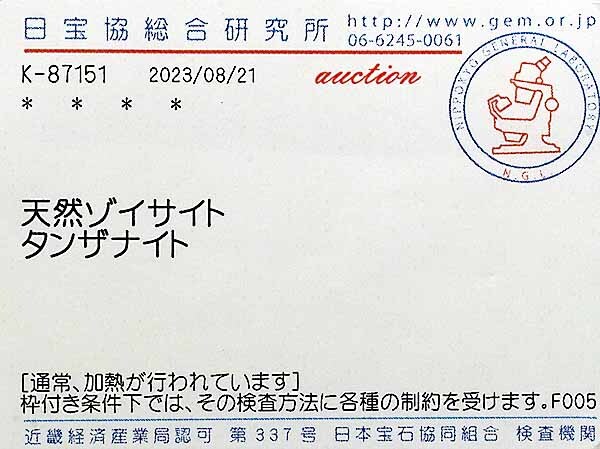 日宝協総合研究所 http://www.gem.or.jp
06-6245-0061
K-87151 2023/08/21 auction
* * * *
NIPPOKYO GENERAL LABORATORY
N.G.L
天然ゾイサイト
タンザナイト
[通常、加熱が行われています]
枠付き条件下では、その検査方法に各種の制約を受けます。F005
近畿経済産業局認可 第337号 日本宝石協同組合 検査機関